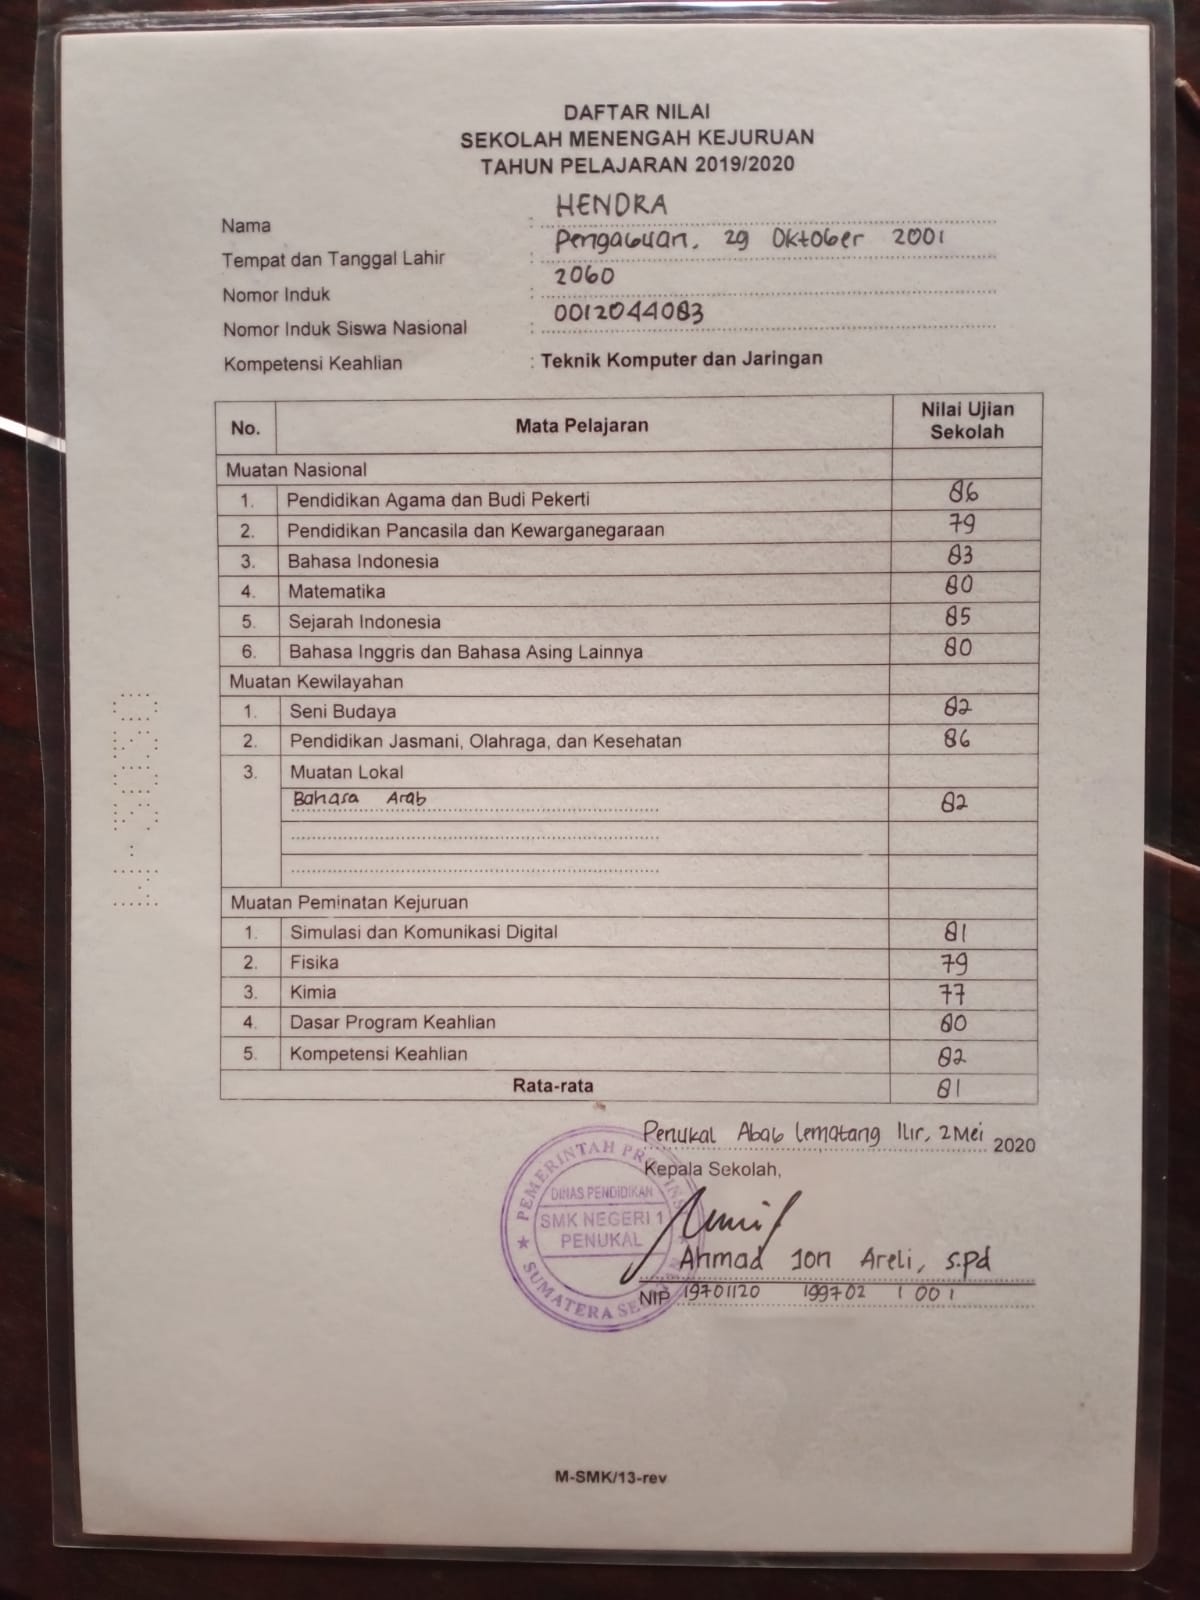 DAFTAR NILAI
SEKOLAH MENENGAH KEJURUAN
TAHUN PELAJARAN 2019/2020
Nama : HENDRA
Tempat dan Tanggal Lahir : Pengabuan, 29 Oktober 2001
Nomor Induk : 2060
Nomor Induk Siswa Nasional : 0012044083
Kompetensi Keahlian : Teknik Komputer dan Jaringan
No. Mata Pelajaran Nilai Ujian Sekolah
Muatan Nasional
1. Pendidikan Agama dan Budi Pekerti 86
2. Pendidikan Pancasila dan Kewarganegaraan 79
3. Bahasa Indonesia 83
4. Matematika 80
5. Sejarah Indonesia 85
6. Bahasa Inggris dan Bahasa Asing Lainnya 80
Muatan Kewilayahan
1. Seni Budaya 82
2. Pendidikan Jasmani, Olahraga, dan Kesehatan 86
3. Muatan Lokal
Bahasa Arab 82
Muatan Peminatan Kejuruan
1. Simulasi dan Komunikasi Digital 81
2. Fisika 79
3. Kimia 77
4. Dasar Program Keahlian 80
5. Kompetensi Keahlian 82
Rata-rata 81
Penukal Abab Lematang Ilir, 2 Mei 2020
Kepala Sekolah,
PEMERINTAH PROVINSI
DINAS PENDIDIKAN
SMK NEGERI 1
PENUKAL
SUMATERA SELATAN
Ahmad Jon Areli, S.Pd
NIP 19701120 199702 1 001
M-SMK/13-rev